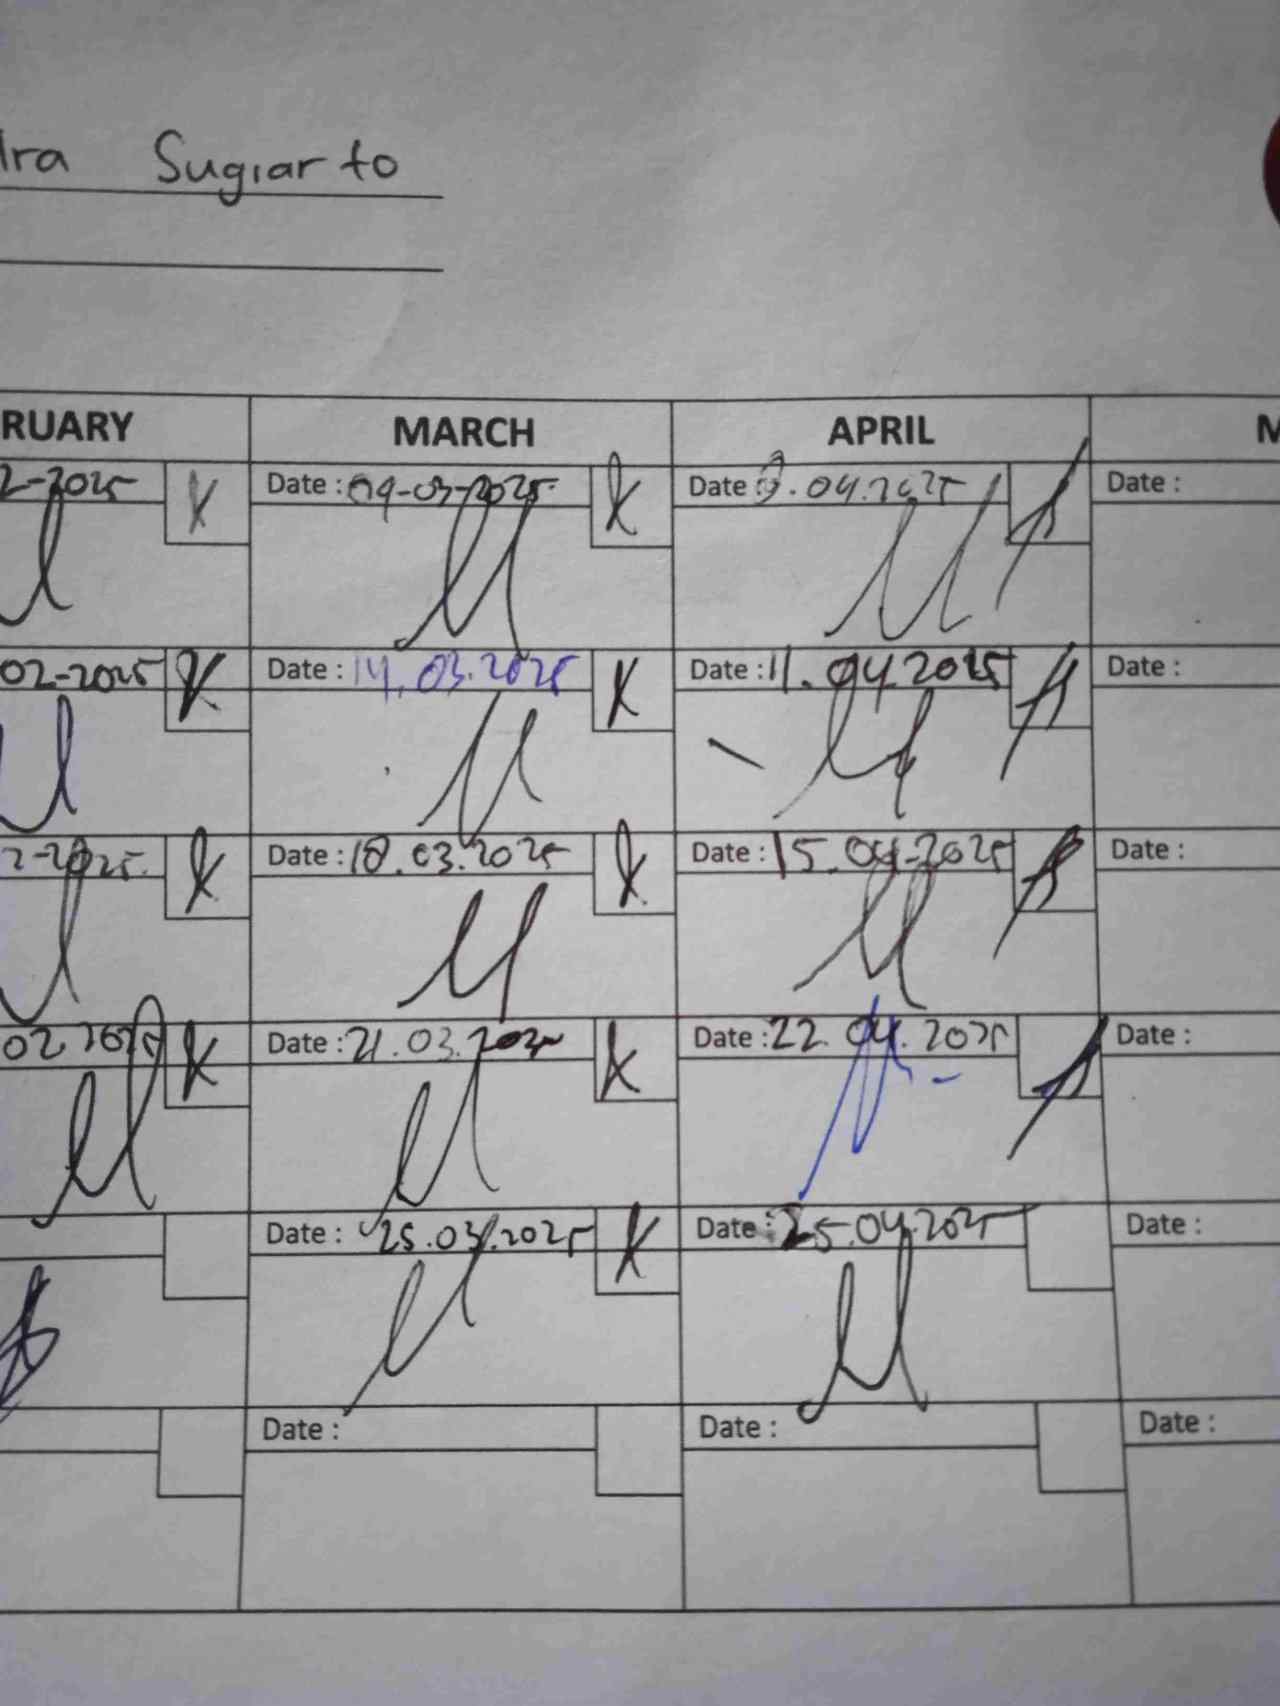 Sugiarto
RUARY MARCH APRIL
2-2025 Date : 04-03-2025 Date .04.2025 Date :
02-2025 Date : 14.03.2025 Date : 11.04.2025 Date :
2-2025. Date : 18.03.2025 Date : 15.04.2025 Date :
02 2025 Date : 21.03.2025 Date : 22.04.2025 Date :
Date : 25.03.2025 Date : 25.04.2025 Date :
Date : Date : Date :